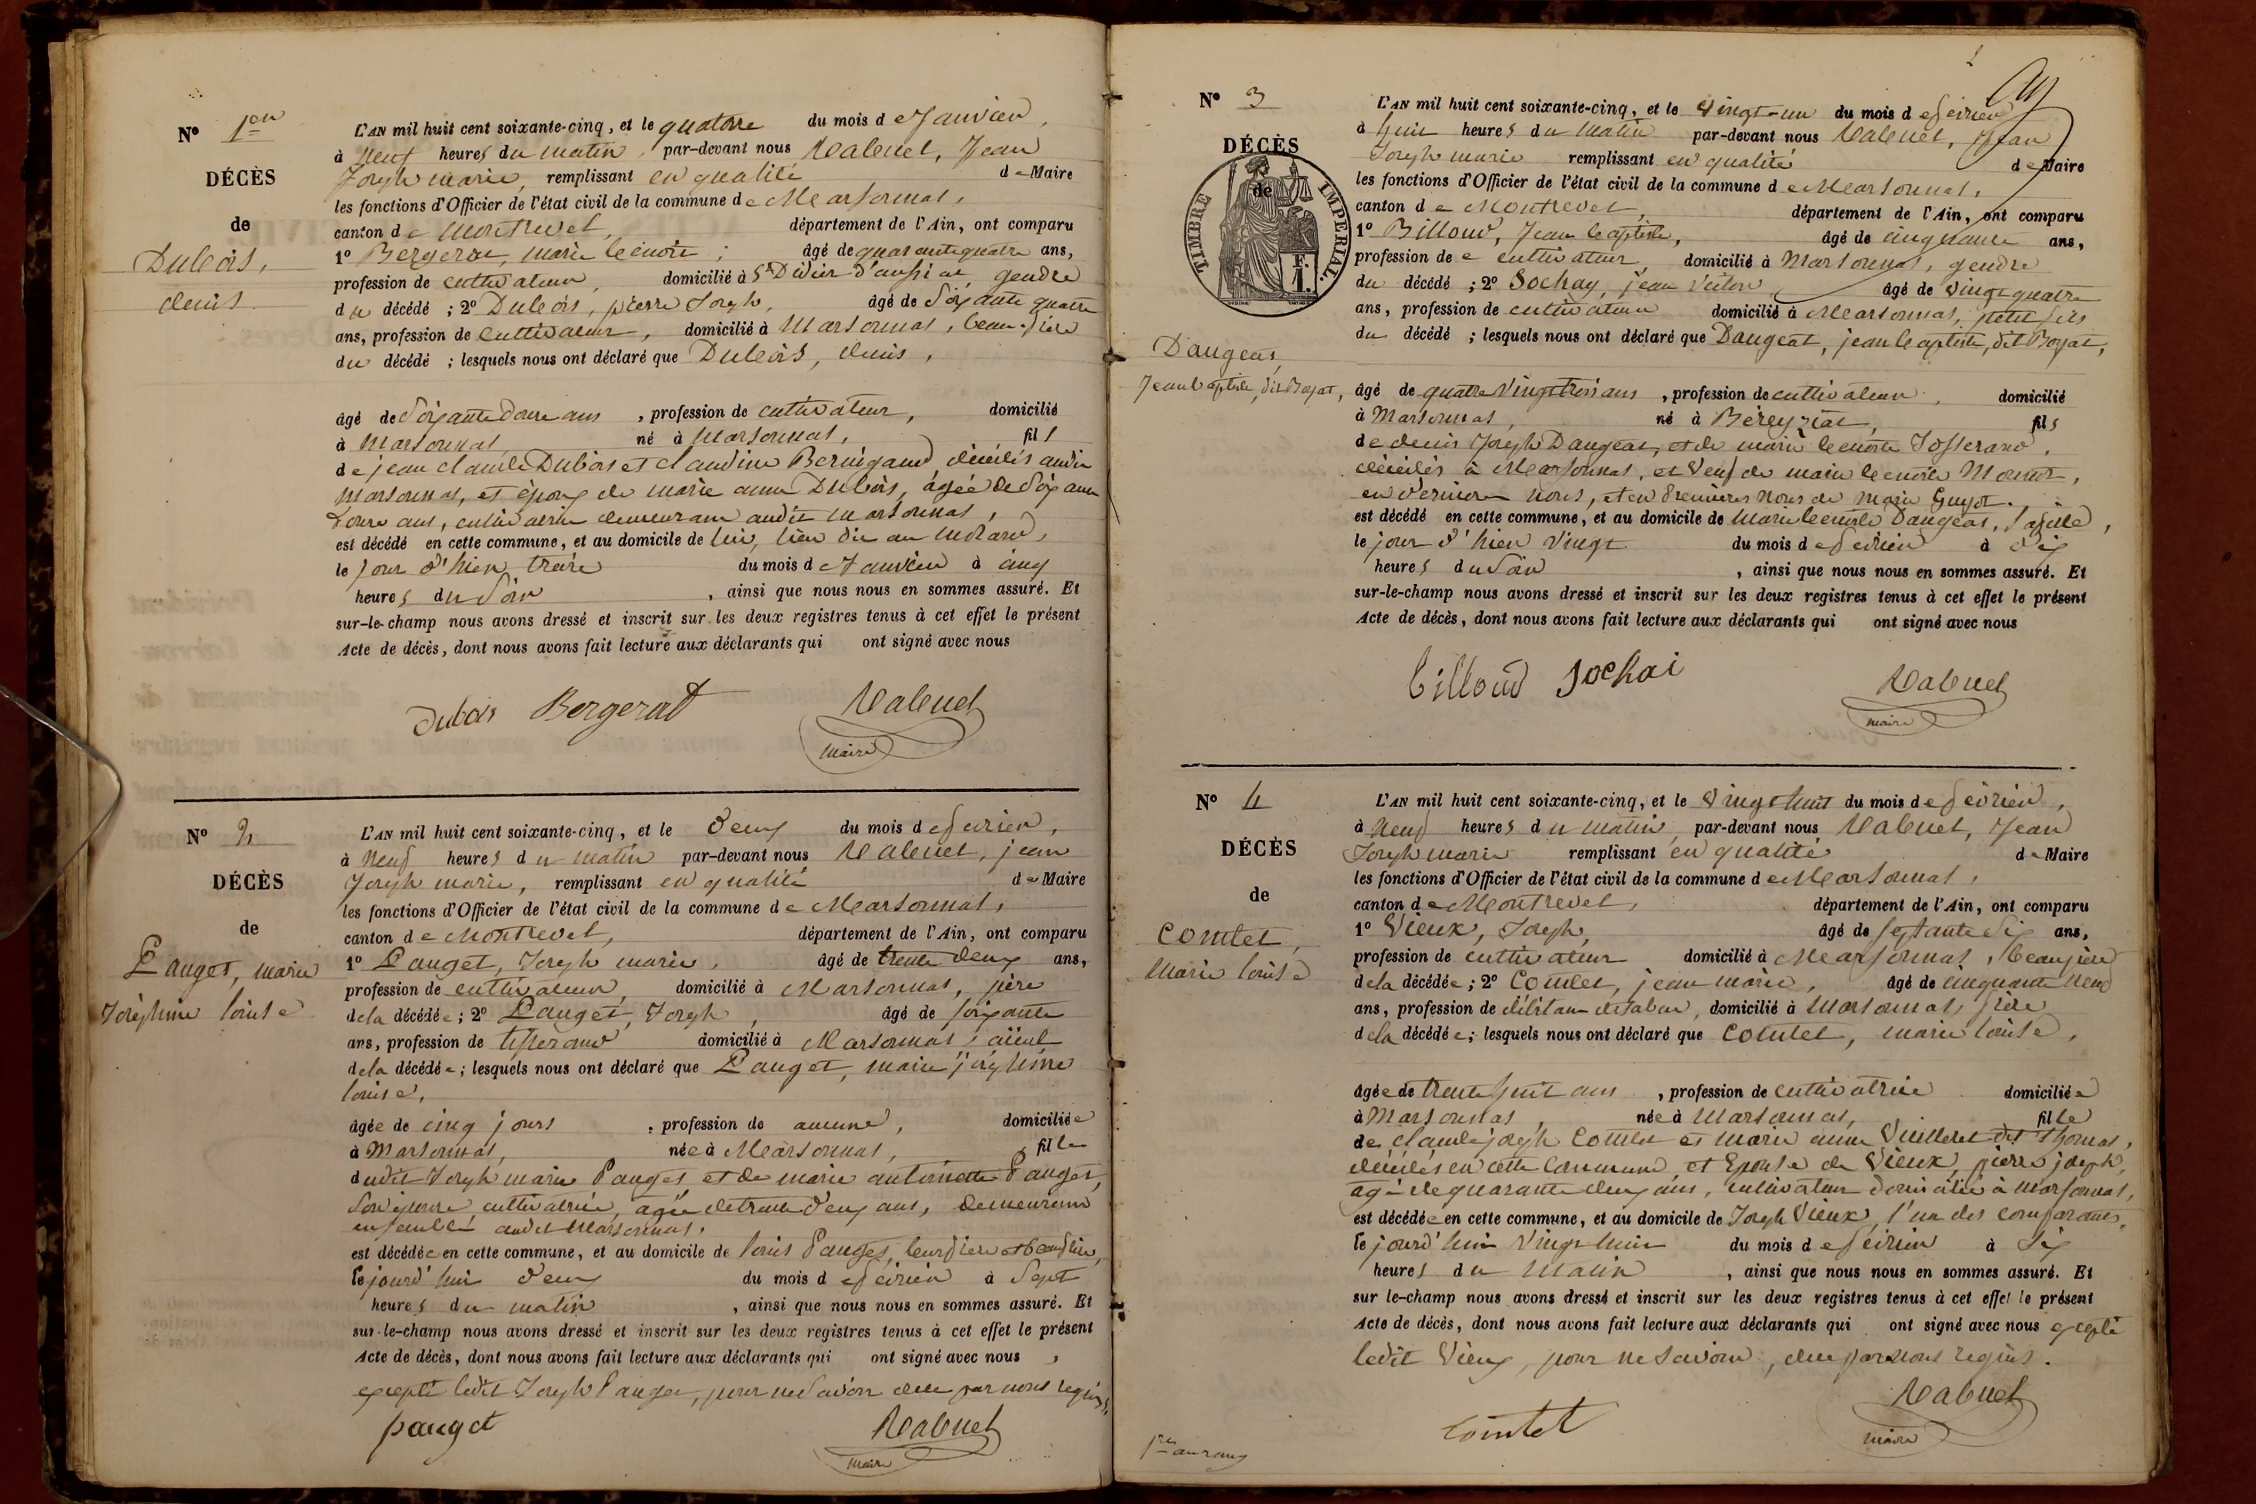 N° 1er
DÉCÈS
de
Dubois,
denis
L'AN mil huit cent soixante-cinq, et le quatorze du mois de Janvier,
à neuf heures du matin, par-devant nous Rabuel, Jean
Joseph marie, remplissant en qualité de Maire
les fonctions d'Officier de l'état civil de la commune de Marsonnas,
canton de Montrevel, département de l'Ain, ont comparu
1° Bergerat, marie benoit; âgé de quarante quatre ans,
profession de cultivateur, domicilié à St Didier d'aussiat, gendre
du décédé; 2° Dubois, pierre Joseph, âgé de soixante quatre
ans, profession de cultivateur, domicilié à Marsonnas, beau-frère
du décédé; lesquels nous ont déclaré que Dubois, denis,
âgé de soixante douze ans, profession de cultivateur, domicilié
à Marsonnas, né à Marsonnas, fils
de jean claude Dubois et claudine décédés audit
Marsonnas, et époux de marie anne Dubois, agée de soixante
douze ans, cultivatrice demeurant audit Marsonnas,
est décédé en cette commune, et au domicile de lui, lieu dit au
le jour d'hier treize du mois de Janvier à cinq
heures du soir, ainsi que nous nous en sommes assuré. Et
sur-le-champ nous avons dressé et inscrit sur les deux registres tenus à cet effet le présent
Acte de décès, dont nous avons fait lecture aux déclarants qui ont signé avec nous
Dubois Bergerat Rabuel
maire
N° 2
DÉCÈS
de
Pauget, marie
Joséphine louise
L'AN mil huit cent soixante-cinq, et le deux du mois de fevrier,
à neuf heures du matin par-devant nous Rabuel, jean
Joseph marie, remplissant en qualité de Maire
les fonctions d'Officier de l'état civil de la commune de Marsonnas,
canton de Montrevel, département de l'Ain, ont comparu
1° Pauget, Joseph marie, âgé de trente deux ans,
profession de cultivateur, domicilié à Marsonnas, père
de la décédée; 2° Pauget, Joseph, âgé de soixante
ans, profession de tisserand domicilié à Marsonnas, aïeul
de la décédée; lesquels nous ont déclaré que Pauget, marie joséphine
louise,
âgée de cinq jours, profession de aucune, domiciliée
à Marsonnas, née à Marsonnas, fille
dudit Joseph marie Pauget et de marie antoinette Pauget,
son épouse, cultivatrice, agée de trente deux ans, demeurant
ensemble audit Marsonnas.
est décédée en cette commune, et au domicile de louis Pauget,
le jourd'hui deux du mois de février à sept
heures du matin, ainsi que nous nous en sommes assuré. Et
sur-le-champ nous avons dressé et inscrit sur les deux registres tenus à cet effet le présent
Acte de décès, dont nous avons fait lecture aux déclarants qui ont signé avec nous,
excepté ledit Joseph Pauget, pour ne savoir de ce par nous requis.
pauget Rabuel
maire
N° 3
DÉCÈS
de
TIMBRE IMPERIAL
F.
1.
Daugeat,
Jean baptiste, dit Boyat,
L'AN mil huit cent soixante-cinq, et le vingt-un du mois de février
à huit heures du matin par-devant nous Rabuel, Jean
Joseph marie remplissant en qualité de Maire
les fonctions d'Officier de l'état civil de la commune de Marsonnas,
canton de Montrevel, département de l'Ain, ont comparu
1° Billoud, Jean baptiste, âgé de cinquante ans,
profession de cultivateur domicilié à Marsonnas, gendre
du décédé; 2° Sochay, jean âgé de vingt quatre
ans, profession de cultivateur domicilié à Marsonnas, petit fils
du décédé; lesquels nous ont déclaré que Daugeat, jean baptiste, dit Boyat,
âgé de quatre vingt trois ans, profession de cultivateur, domicilié
à Marsonnas, né à Béreyziat, fils
de denis Joseph Daugeat, et de marie benoite Josserand,
décédés à Marsonnas, et veuf de marie benoite
en dernières noces, et en premières noces de marie Guyot.
est décédé en cette commune, et au domicile de Marie benoite Daugeat, sa fille,
le jour d'hier vingt du mois de février à dix
heures du soir, ainsi que nous nous en sommes assuré. Et
sur-le-champ nous avons dressé et inscrit sur les deux registres tenus à cet effet le présent
Acte de décès, dont nous avons fait lecture aux déclarants qui ont signé avec nous
billoud sochai Rabuel
maire
N° 4
DÉCÈS
de
Comtet,
Marie louise
L'AN mil huit cent soixante-cinq, et le vingt huit du mois de février,
à neuf heures du matin, par-devant nous Rabuel, Jean
Joseph marie remplissant en qualité de Maire
les fonctions d'Officier de l'état civil de la commune de Marsonnas,
canton de Montrevel, département de l'Ain, ont comparu
1° Vieux, Joseph, âgé de septante six ans,
profession de cultivateur domicilié à Marsonnas, beau père
de la décédée; 2° Comtet, jean marie, âgé de cinquante neuf
ans, profession de débitant de tabac, domicilié à Marsonnas, frère
de la décédée; lesquels nous ont déclaré que Comtet, marie louise,
âgée de trente huit ans, profession de cultivatrice domiciliée
à Marsonnas, née à Marsonnas, fille
de claude joseph Comtet et marie anne Vuilleret dit thomas,
décédés en cette commune, et épouse de Vieux, pierre joseph,
agé de quarante deux ans, cultivateur domicilié à Marsonnas,
est décédée en cette commune, et au domicile de Joseph Vieux, l'un des comparants,
le jourd'hui vingt huit du mois de février à six
heures du matin, ainsi que nous nous en sommes assuré. Et
sur le-champ nous avons dressé et inscrit sur les deux registres tenus à cet effet le présent
Acte de décès, dont nous avons fait lecture aux déclarants qui ont signé avec nous excepté
ledit Vieux, pour ne savoir, de ce par nous requis.
Comtet Rabuel
maire